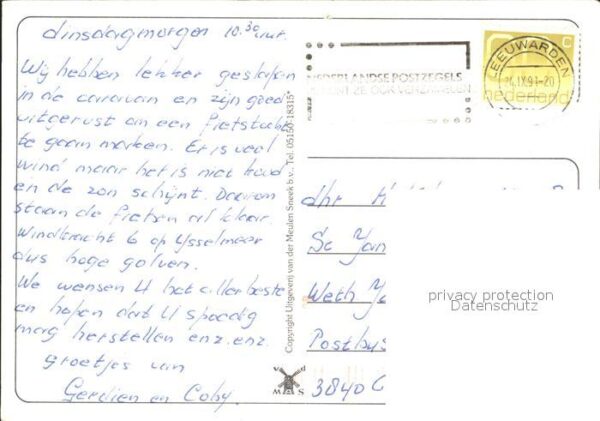 dinsdagmorgen 10.30 uur.
Wij hebben lekker geslapen
in de caravan en zijn goed
uitgerust om een fietstocht
te gaan maken. Er is veel
wind maar het is niet koud
en de zon schijnt. Daarom
staan de fietsen al klaar.
Windkracht 6 op IJsselmeer
dus hoge golven.
We wensen U het allerbeste
en hopen dat U spoedig
mag herstellen enz. enz.
groetjes van
Gerdien en Coby
Copyright Uitgeverij van der Meulen Sneek b.v., Tel. 05150-18315*
v d
M S
NEDERLANDSE POSTZEGELS
LEEUWARDEN
IX.91-20
c
nederland
dhr
Sc Jan
Weth
Postbus
3840
privacy protection
Datenschutz